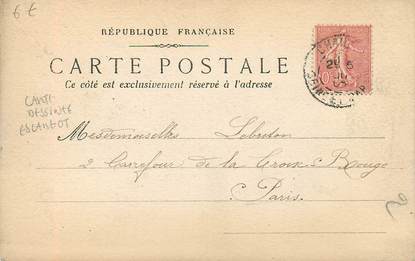 6 €
RÉPUBLIQUE FRANÇAISE
CARTE POSTALE
Ce côté est exclusivement réservé à l'adresse
CARTE
DESSINÉE
Mesdemoiselles Lebreton
2 Carrefour de la Croix Rouge
Paris.
2